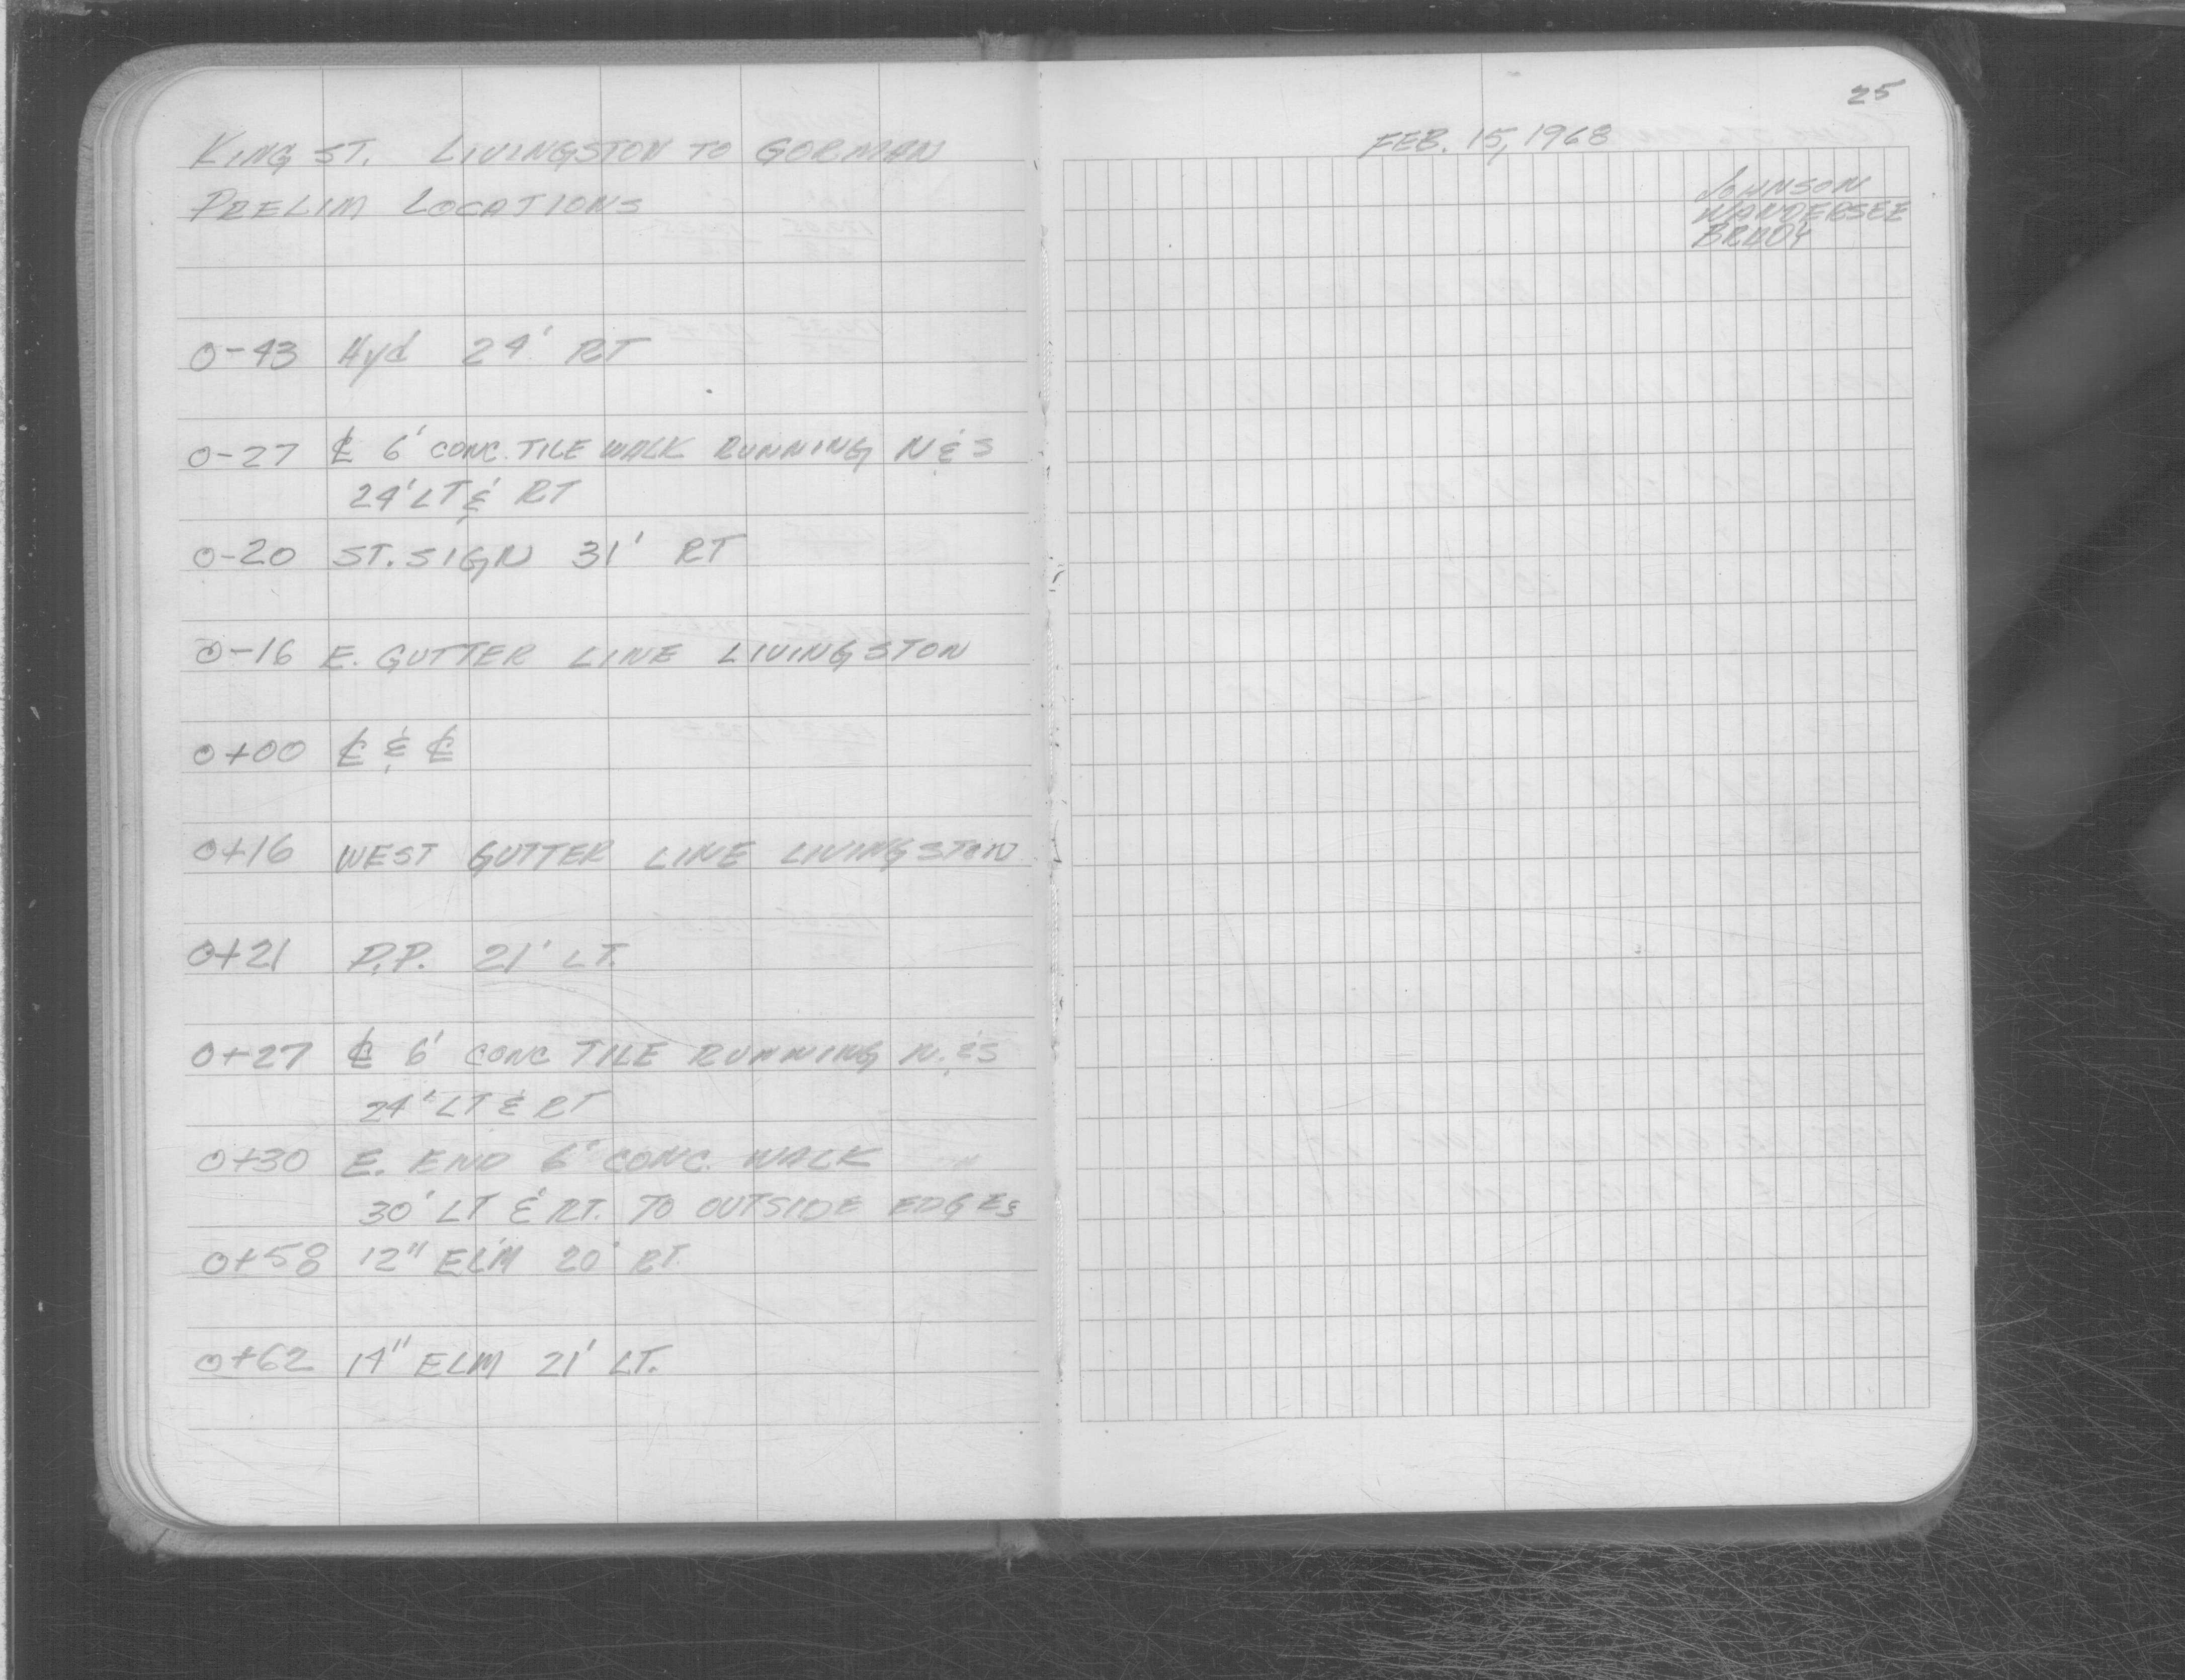 25
KING ST. LIVINGSTON TO GORMAN
FEB. 15, 1968
PRELIM LOCATIONS
JOHNSON
WANDERSEE
BRUDY
0-43 Hyd 24' RT
0-27 ℄ 6' CONC. TILE WALK RUNNING N & S
24' LT & RT
0-20 ST. SIGN 31' RT
0-16 E. GUTTER LINE LIVINGSTON
0+00 ℄ & ℄
0+16 WEST GUTTER LINE LIVINGSTON
0+21 P.P. 21' LT.
0+27 ℄ 6' CONC TILE RUNNING N. & S
24' LT & RT
0+30 E. END 6' CONC. WALK
30' LT & RT. TO OUTSIDE EDGES
0+58 12" ELM 20' RT.
0+62 14" ELM 21' LT.